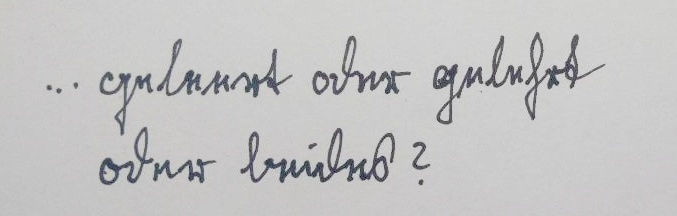 ... geleert oder gelehrt
oder beides?